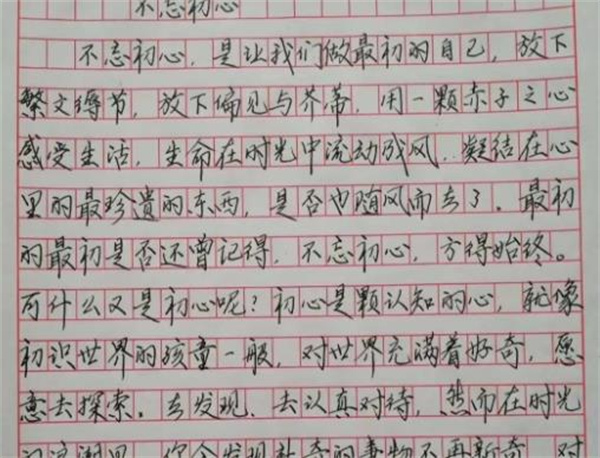 不忘初心
不忘初心，是让我们做最初的自己，放下
繁文缛节，放下偏见与芥蒂，用一颗赤子之心
感受生活，生命在时光中流动成风，凝结在心
里的最珍贵的东西，是否也随风而去了，最初
的最初是否还曾记得，不忘初心，方得始终。
可什么又是初心呢？初心是颗认知的心，就像
初识世界的孩童一般，对世界充满着好奇，愿
意去探索。去发现，去认真对待，然而在时光
你会发现新奇的事物不再新奇，对